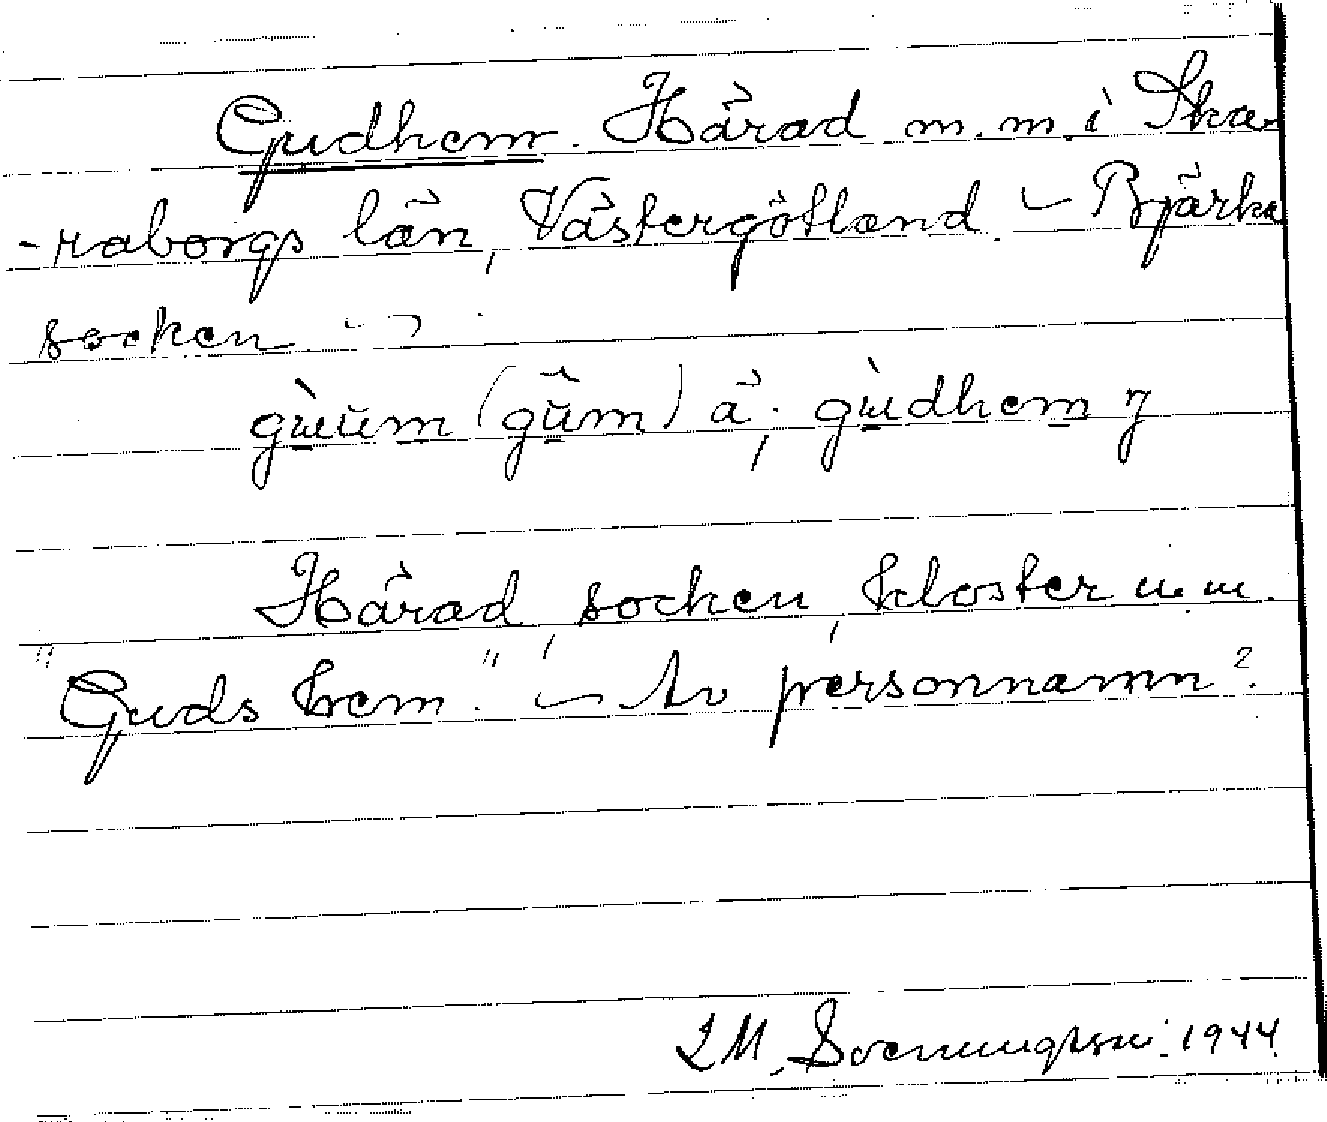 Gudhem. Härad m.m. i Ska-
-raborgs län, Västergötland. – Bjärka
socken
gùŭm (gūm) ä.; gùdhem y
Härad, socken, kloster m.m.
"Guds hem." – Av personnamn?
1944